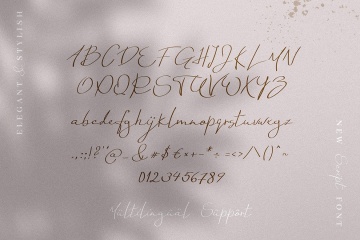 ELEGANT & STYLISH
ABCDEFGHIJKLMN
OPQRSTUVWXYZ
abcdefghijklmnopqrstuvwxyz
0123456789
Multilingual Support
NEW Script FONT